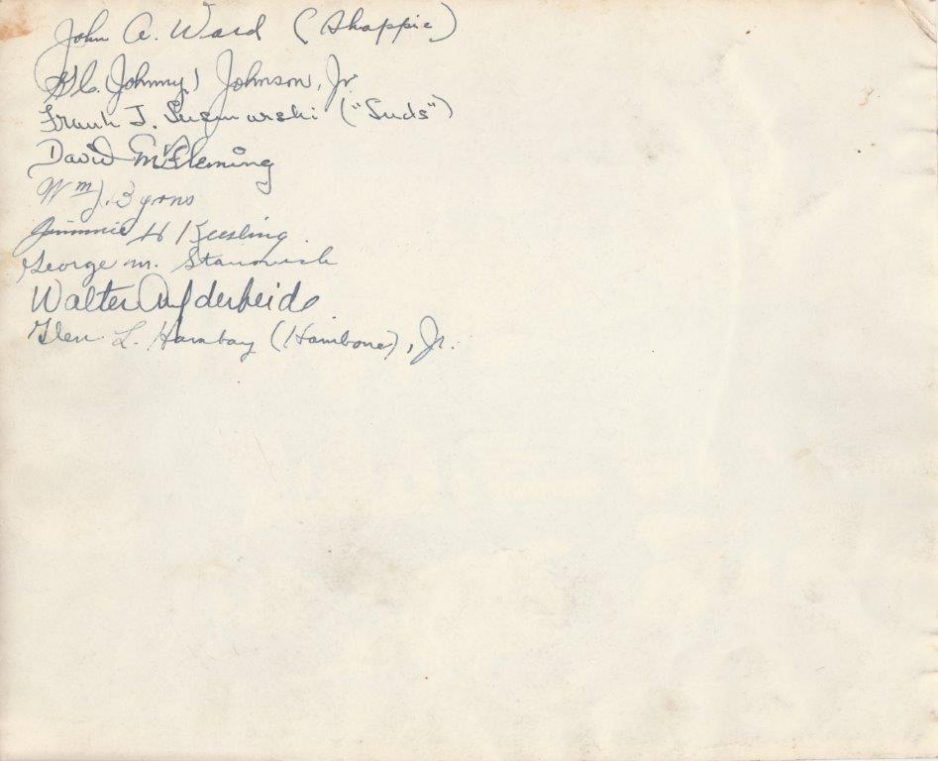 John A. Ward (Shappie)
(Johnny) Johnson, Jr.
Frank J. ("Suds")
David M. Fleming
Wm J. Byrons
Jimmie H Keesling
George M. Stanowich
Walter Aufderheide
Glen L. Hambay (Hambone), Jr.